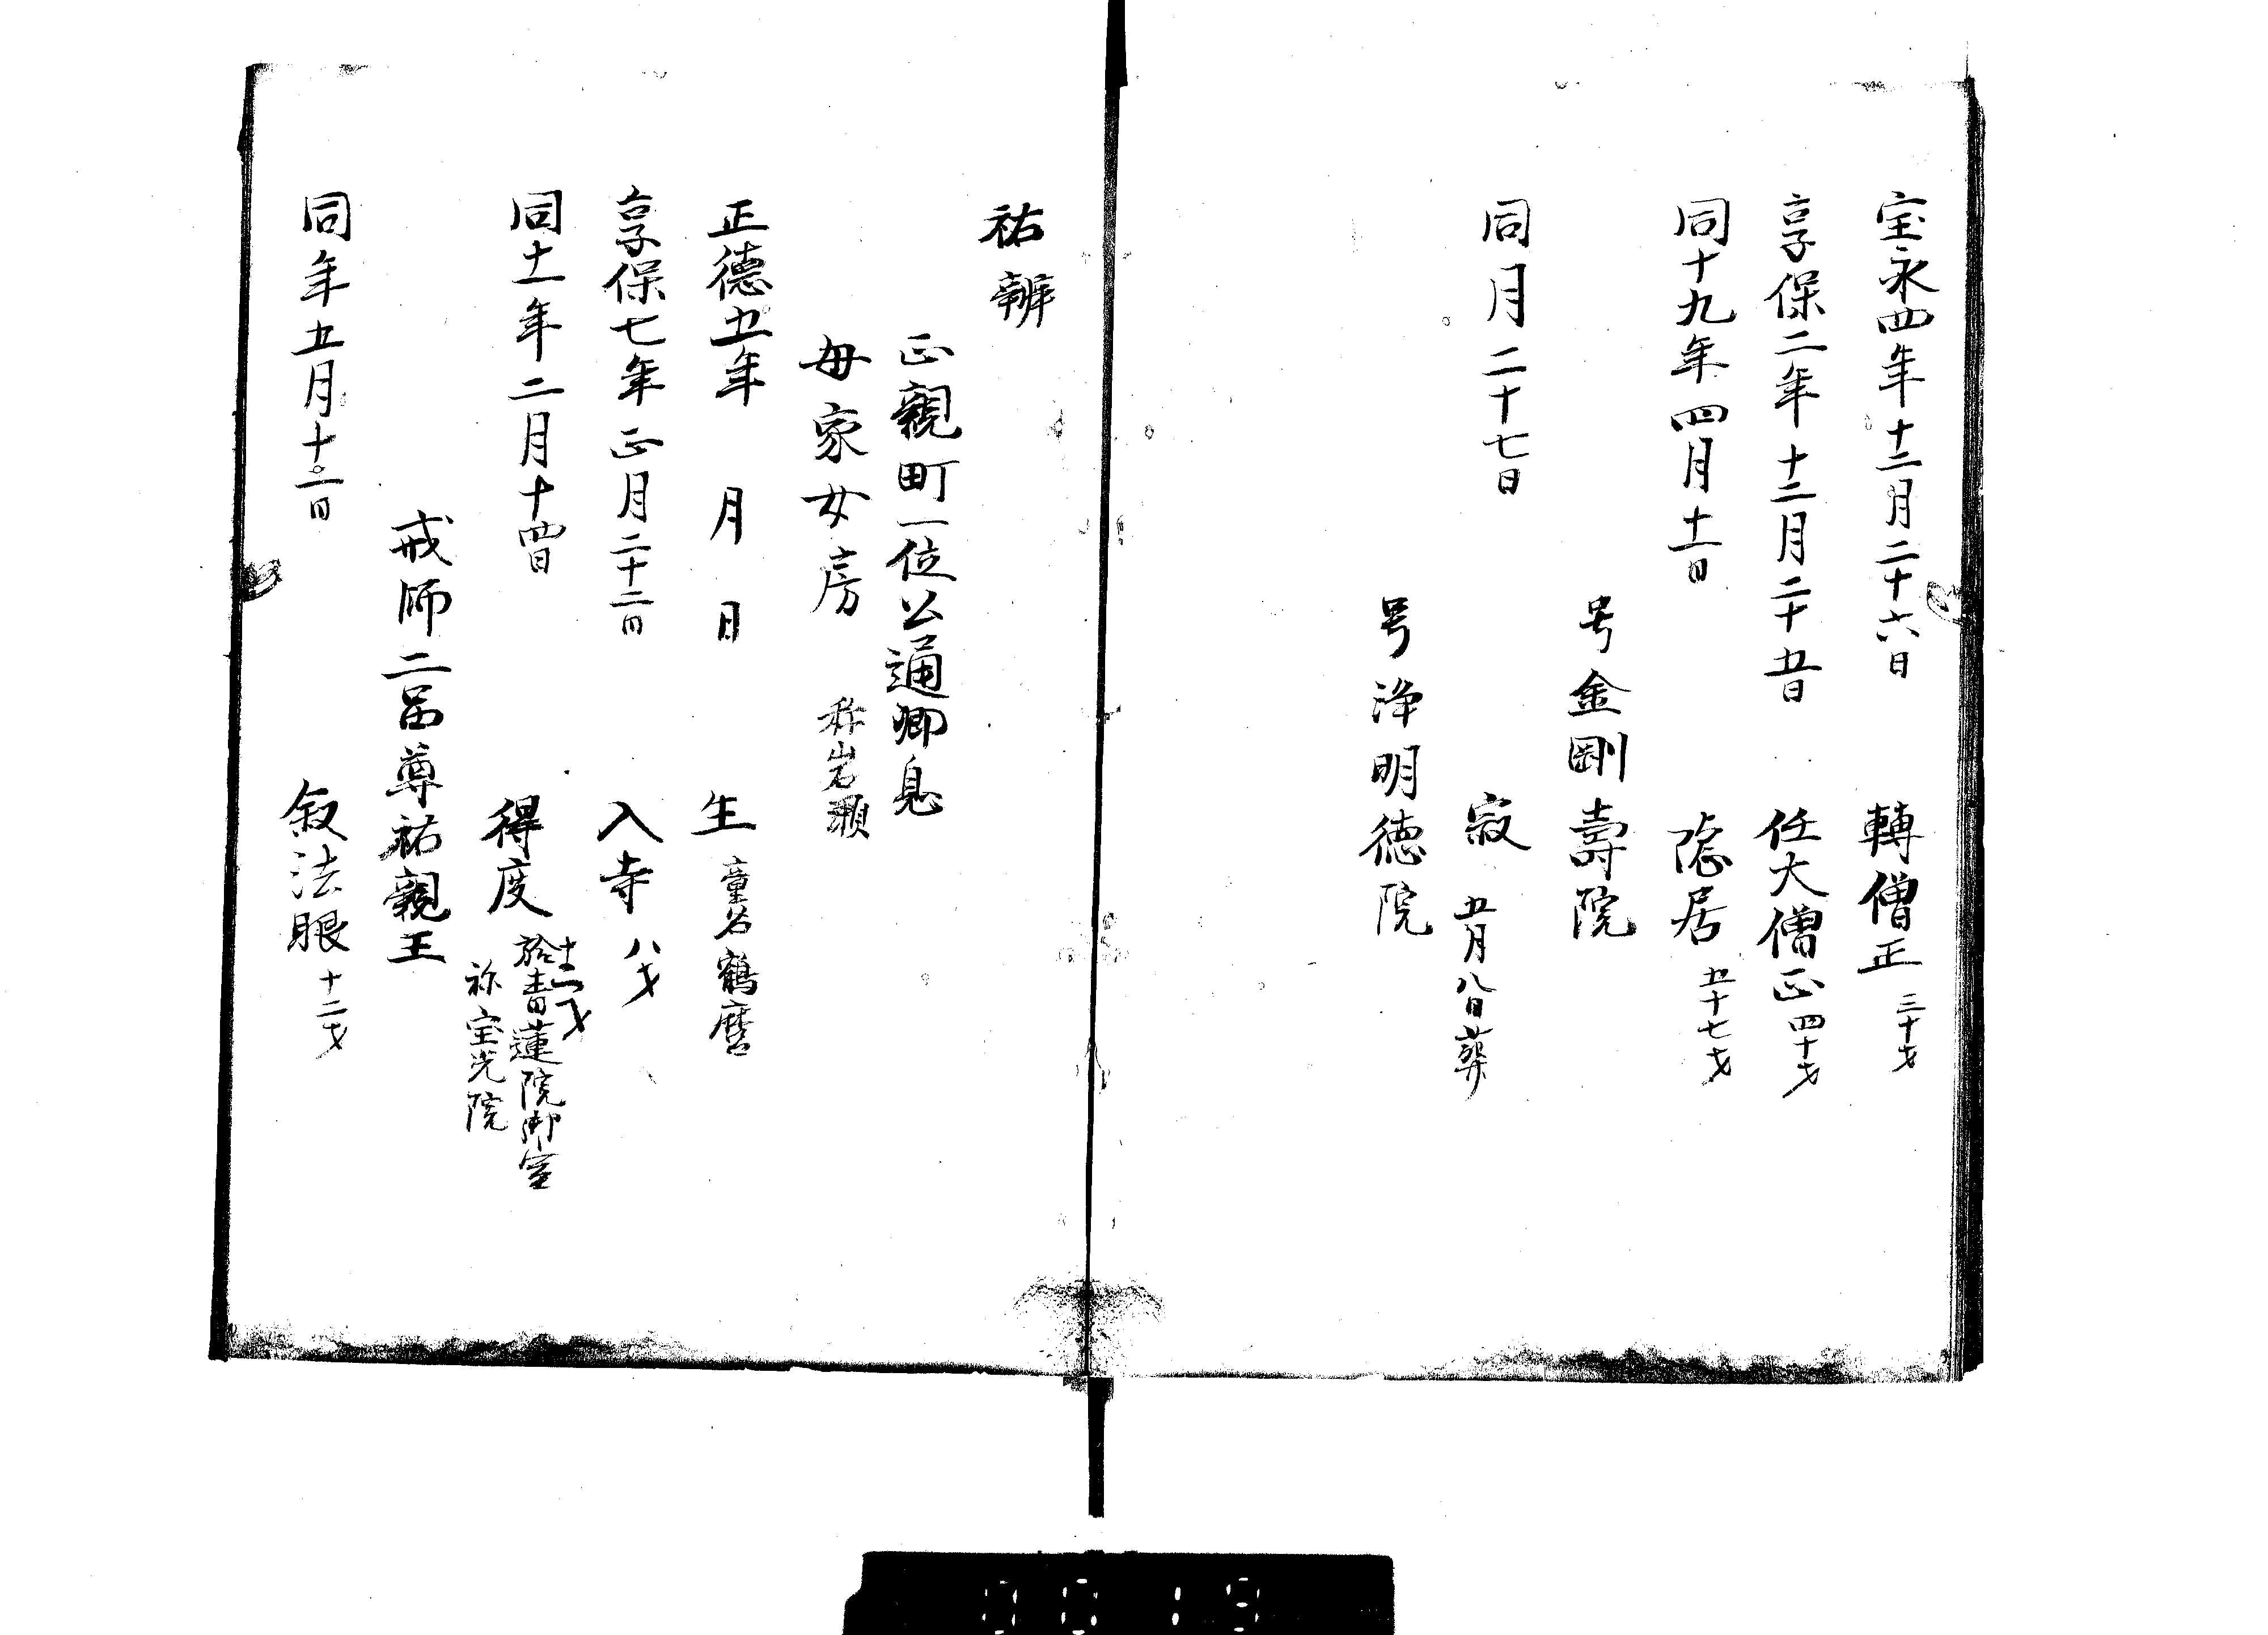 宝永四年十二月二十六日 轉僧正 三十才
享保二年十二月二十五日 任大僧正 四十才
同十九年四月十一日 隠居 五十七才
号金剛壽院
同月二十七日 寂 五月八日葬
号浄明徳院
祐辨
正親町一位公通卿息
母家女房 称岩瀬
正徳五年 月 日 生 童名鶴麿
享保七年正月二十二日 入寺 八才
同十一年二月十四日 得度 十二才
於青蓮院御室
称宝光院
戒師二品尊祐親王
同年五月十二日 叙法眼 十二才
0019